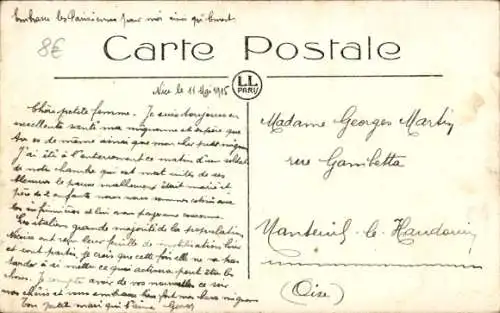 Embrasse les Parisiennes pour moi ainsi qu'Ernest
8€
Carte Postale
LL
PARIS
Nice le 11 Mai 1915
Chère petite femme. Je suis toujours en
excellente santé ma mignonne et espère que
tu es de même ainsi que mon cher petit mignon
J'ai été à l'enterrement ce matin d'un soldat
de notre chambre qui est mort suites de ses
blessures le pauvre malheureux était marié et
père de 2 enfants nous nous sommes cotisés avec
les infirmières et lui avons payé une couronne.
Les italiens grande majorité de la population
Niçoise ont reçu leur feuille de mobilisation hier
et sont partis, je crois que cette fois elle ne va pas
tarder à s'y mettre ce qui activera peut être les
choses. Je compte avoir de vos nouvelles ce soir
mes chéris et vous embrasse bien fort mes chers mignons
Ton petit mari qui t'aime Georges
Madame Georges Martin
rue Gambetta
Nanteuil-le-Haudouin
(Oise)